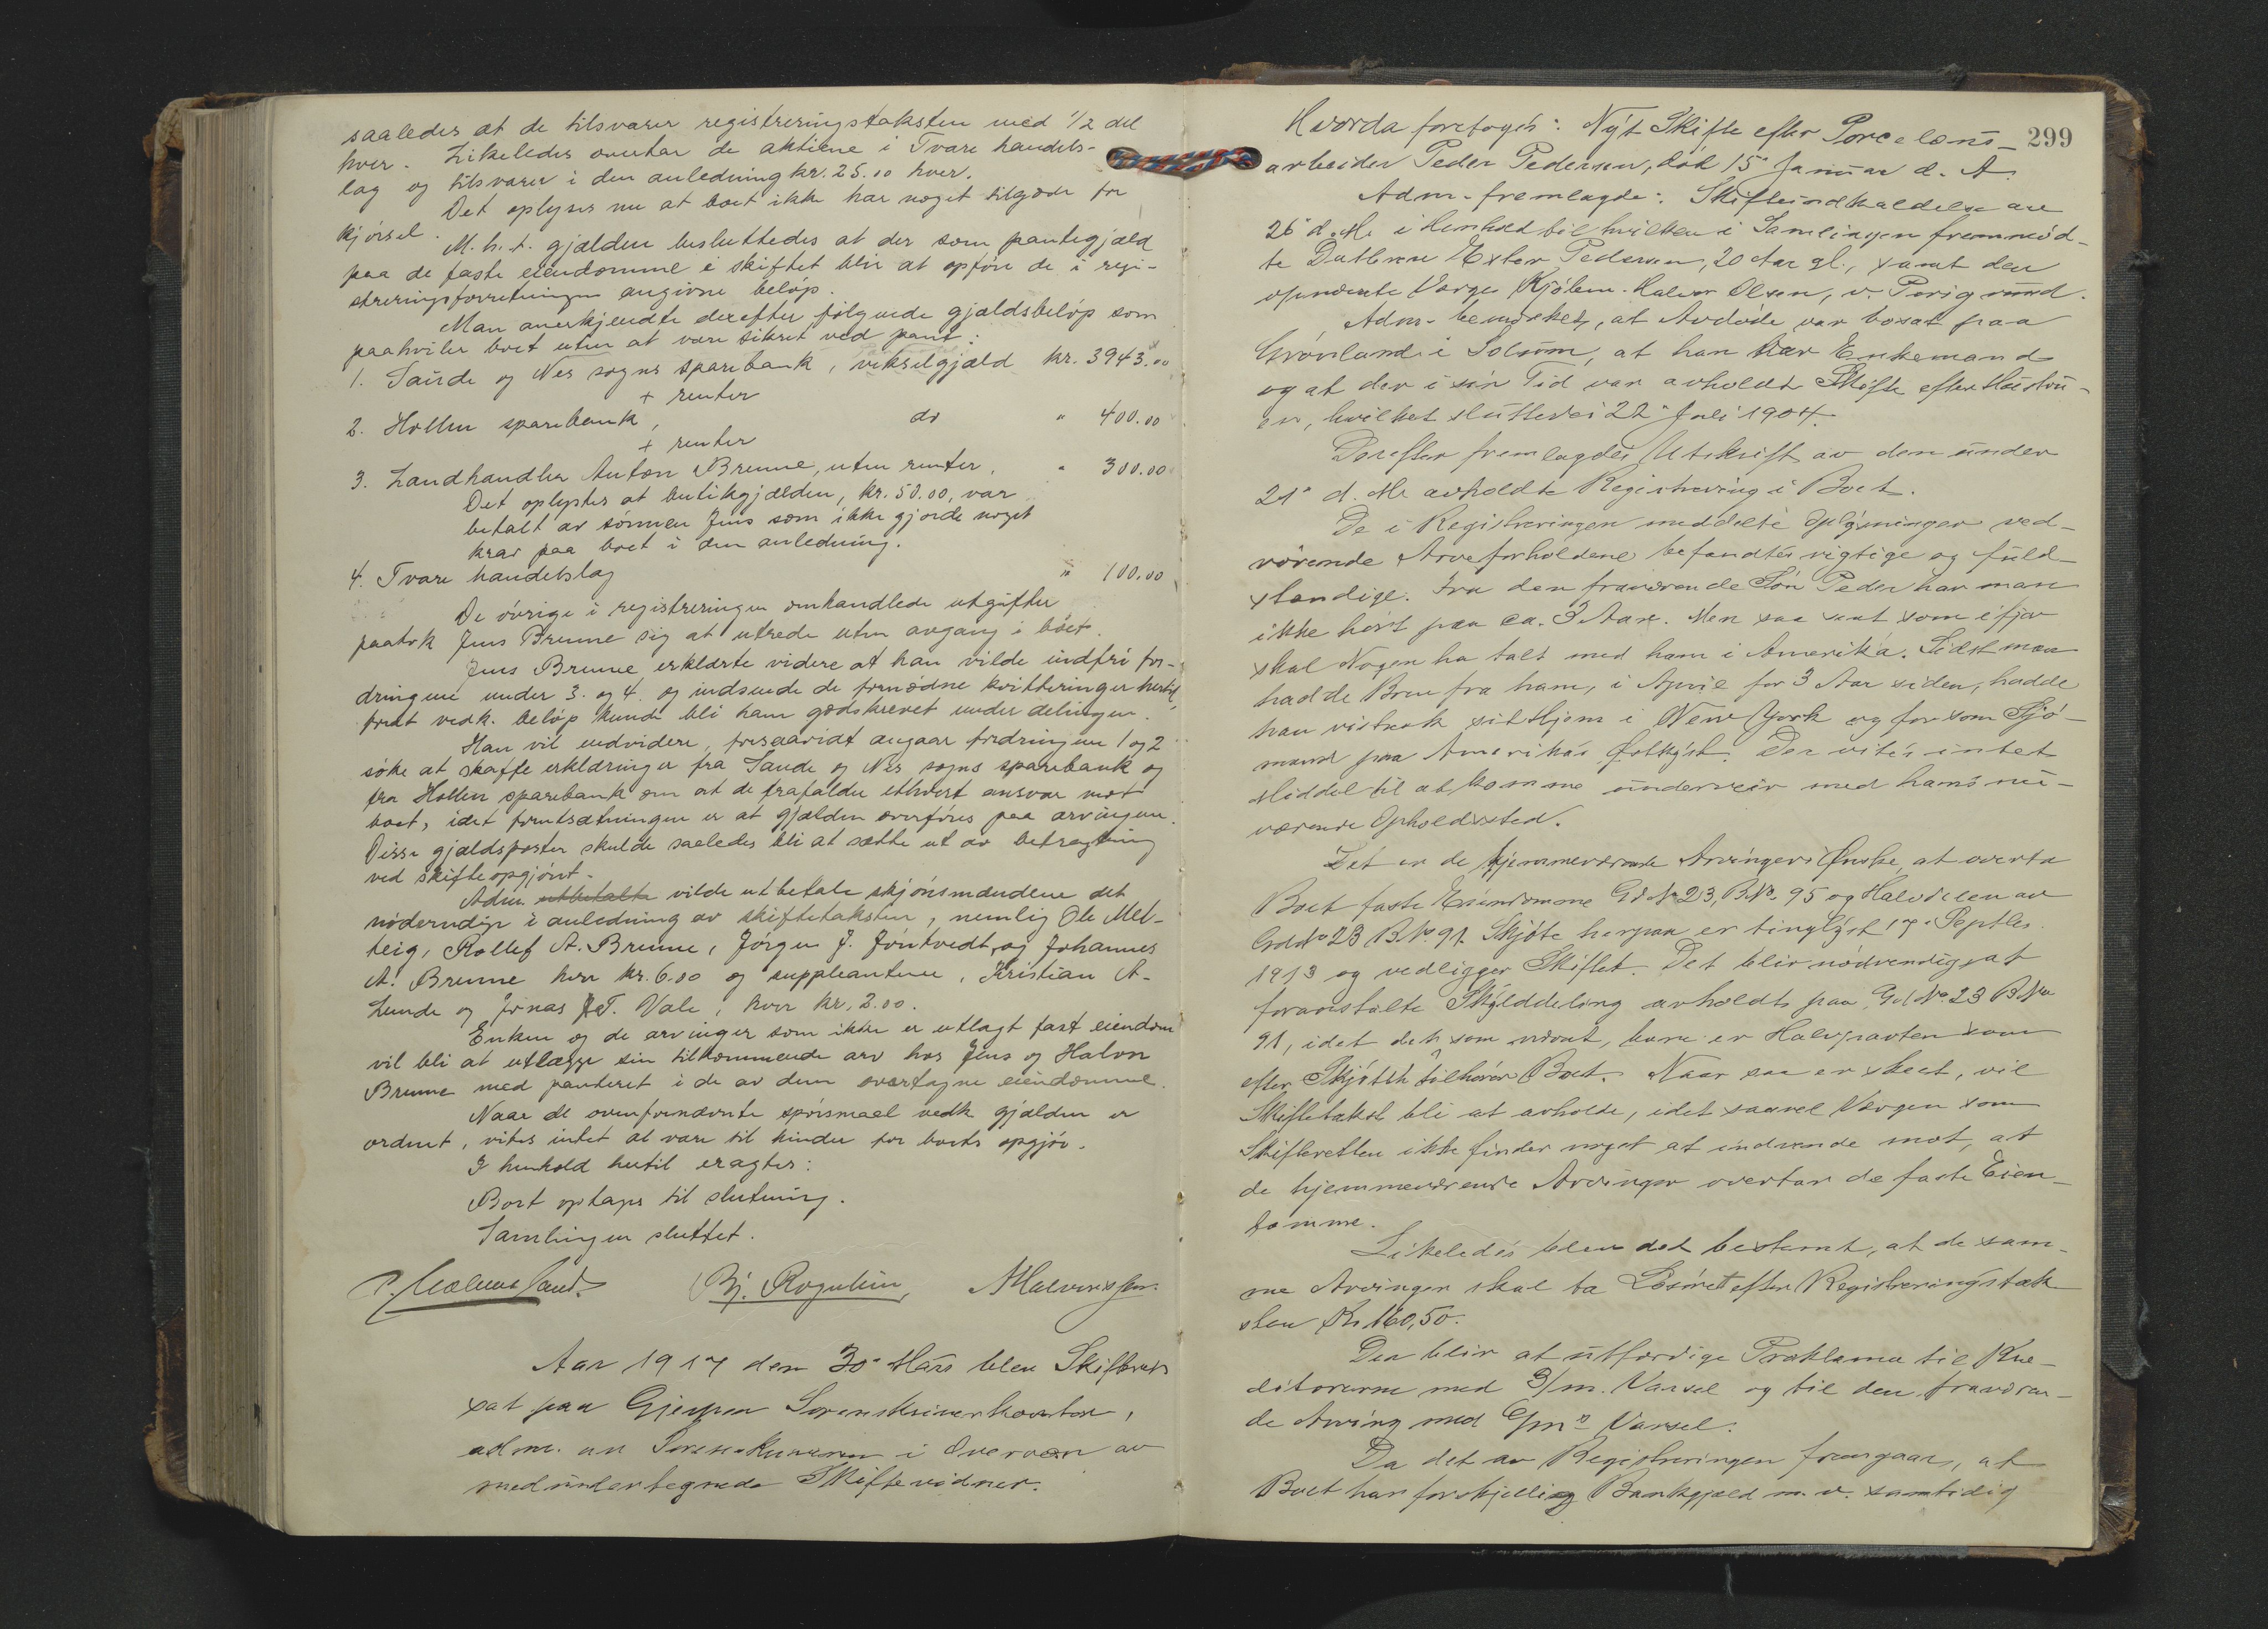 saaledes at de tilsvarer registreringstaksten med 1/2 del
hver. Likeledes overtar de aktiene i Tvare handels-
lag og tilsvarer i den anledning kr. 25.00 hver.
Det oplyses nu at boet ikke har noget tilgode for
kjörsel.
M. h. t. gjælden besluttedes at der som pantegjæld
paa de faste eiendomme i skiftet blir at opföre de i regi-
streringsforretningen angivne belöp.
Man anerkjendte derefter fölgende gjældsbelöp som
paahviler boet uten at være sikret ved pant:
1. Saude og Nes sogns sparebank, vekselgjæld kr. 3943.00
+ renter
2. Hollen sparebank, do " 400.00
+ renter
3. Landhandler Anton Brenne, uten renter, " 300.00
Det oplystes at butikgjælden, kr. 50.00, var
betalt av sönnen Jens som ikke gjorde noget
krav paa boet i den anledning.
4. Tvare handelslag " 100.00
De övrige i registreringen omhandlede utgifter
paatok Jens Brenne sig at utrede uten avgang i boet.
Jens Brenne erklærte videre at han vilde indfri for-
dringene under 3. og 4. og indsende de fornödne kvitteringer hertil
forat vedk. belöp kunde bli ham godskrevet under delingen.
Han vil endvidere, forsaavidt angaar fordringene 1 og 2
söke at skaffe erklæringer fra Saude og Nes sogns sparebank og
fra Hollen sparebank om at de frafalder ethvert ansvar mot
boet, idet forutsætningen er at gjælden overföres paa arvingene.
Disse gjældsposter skulde saaledes bli at sætte ut av betragtning
ved skifteopgjöret.
Adm. utbetalte vilde utbetale skjönsmændene det
nödvendige i anledning av skiftetaksten, nemlig Ole Mel-
teig, Rollef A. Brenne, Jörgen J. Jöntvedt, og Johannes
A. Brenne hver kr. 6.00 og suppleantene, Kristian A.
Lunde og Jonas T. Vale, hver kr. 2.00.
Enken og de arvinger som ikke er utlagt fast eiendom
vil bli at utlægge sin tilkommende arv hos Jens og Halvor
Brenne med panteret i de av dem overtagne eiendomme.
Naar de ovenfornævnte spörsmaal vedk. gjælden er
ordnet, vites intet at være til hinder for boets opgjör.
I henhold hertil eragtes:
Boet optages til slutning.
Samlingen sluttet.
Bj. Rogulien, A Halvorsen
Aar 1917 den 30' Mars blev Skifteret
sat paa Gjerpen Sorenskriverkontor,
adm. av Sorenskriveren i Overvær av
medundertegnede Skiftevidner.
299
Hvorda foretoges: Nýt Skifte efter Porcelæns-
arbeider Peder Pedersen, död 15' Januar d. A.
Adm. fremlagde: Skifteindkaldelse av
26' d. M. i Henhold til hvilken i Samlingen fremmöd-
te Datteren Ester Pedersen, 20 Aar gl., samt den
opnævnte Værge Kjöbm. Halvor Olsen, v. Porsgrund.
Adm. bemærket, at Avdöde var bosat paa
Grönland i Solum, at han var Enkemand
og at der i sin Tid var avholdt Skifte efter Hustru-
en, hvilket sluttedes 22' Juli 1904.
Derefter fremlagdes Utskrift av den under
21' d. M. avholdte Registrering i Boet.
De i Registreringen meddelte Oplýsninger ved-
rörende Arveforholdene befandtes rigtige og fuld-
stændige. Fra den fraværende Sön Peder har man
ikke hört paa ca. 3 Aar. Men saa sent som ifjor
skal Nogen ha talt med ham i Amerika. Sidst man
hadde Brev fra ham, i April for 3 Aar siden, hadde
han vistnok sit Hjem i New York og for som Sjö-
mand paa Amerikas Östkýst. Der vites intet
Middel til at komme underveir med hans nu-
værende Opholdssted.
Det er de hjemmeværende Arvingers Önske at overta
Boets faste Eiendomme Gd No 23, B.No. 95 og Halvdelen av
Gd No 23 B.No. 91. Skjöte herpaa er tinglýst 17' Septbr.
1913 og vedligger Skiftet. Det blir nödvendig, at
foranstalte Skýlddeling avholdt paa Gd No. 23 B.No
91, idet det, som nævnt, bare er Halvparten som
efter Skjötet tilhörer Boet. Naar saa er skeet, vil
Skiftetakst bli at avholde, idet saavel Værgen som
Skifteretten ikke finder noget at indvende mot, at
de hjemmeværende Arvinger overtar de faste Eien-
domme.
Likeledes blev det bestemt, at de sam-
me Arvinger skal ta Lösöret efter Registreringstak-
sten Kr 160,50.
Der blir at utfærdige Proklama til Kre-
ditorerne med 3/m. Varsel og til den fraværen-
de Arving med Varsel.
Da det av Registreringen fremgaar, at
Boet har forskjellig Bankgjæld m. v. samtidig